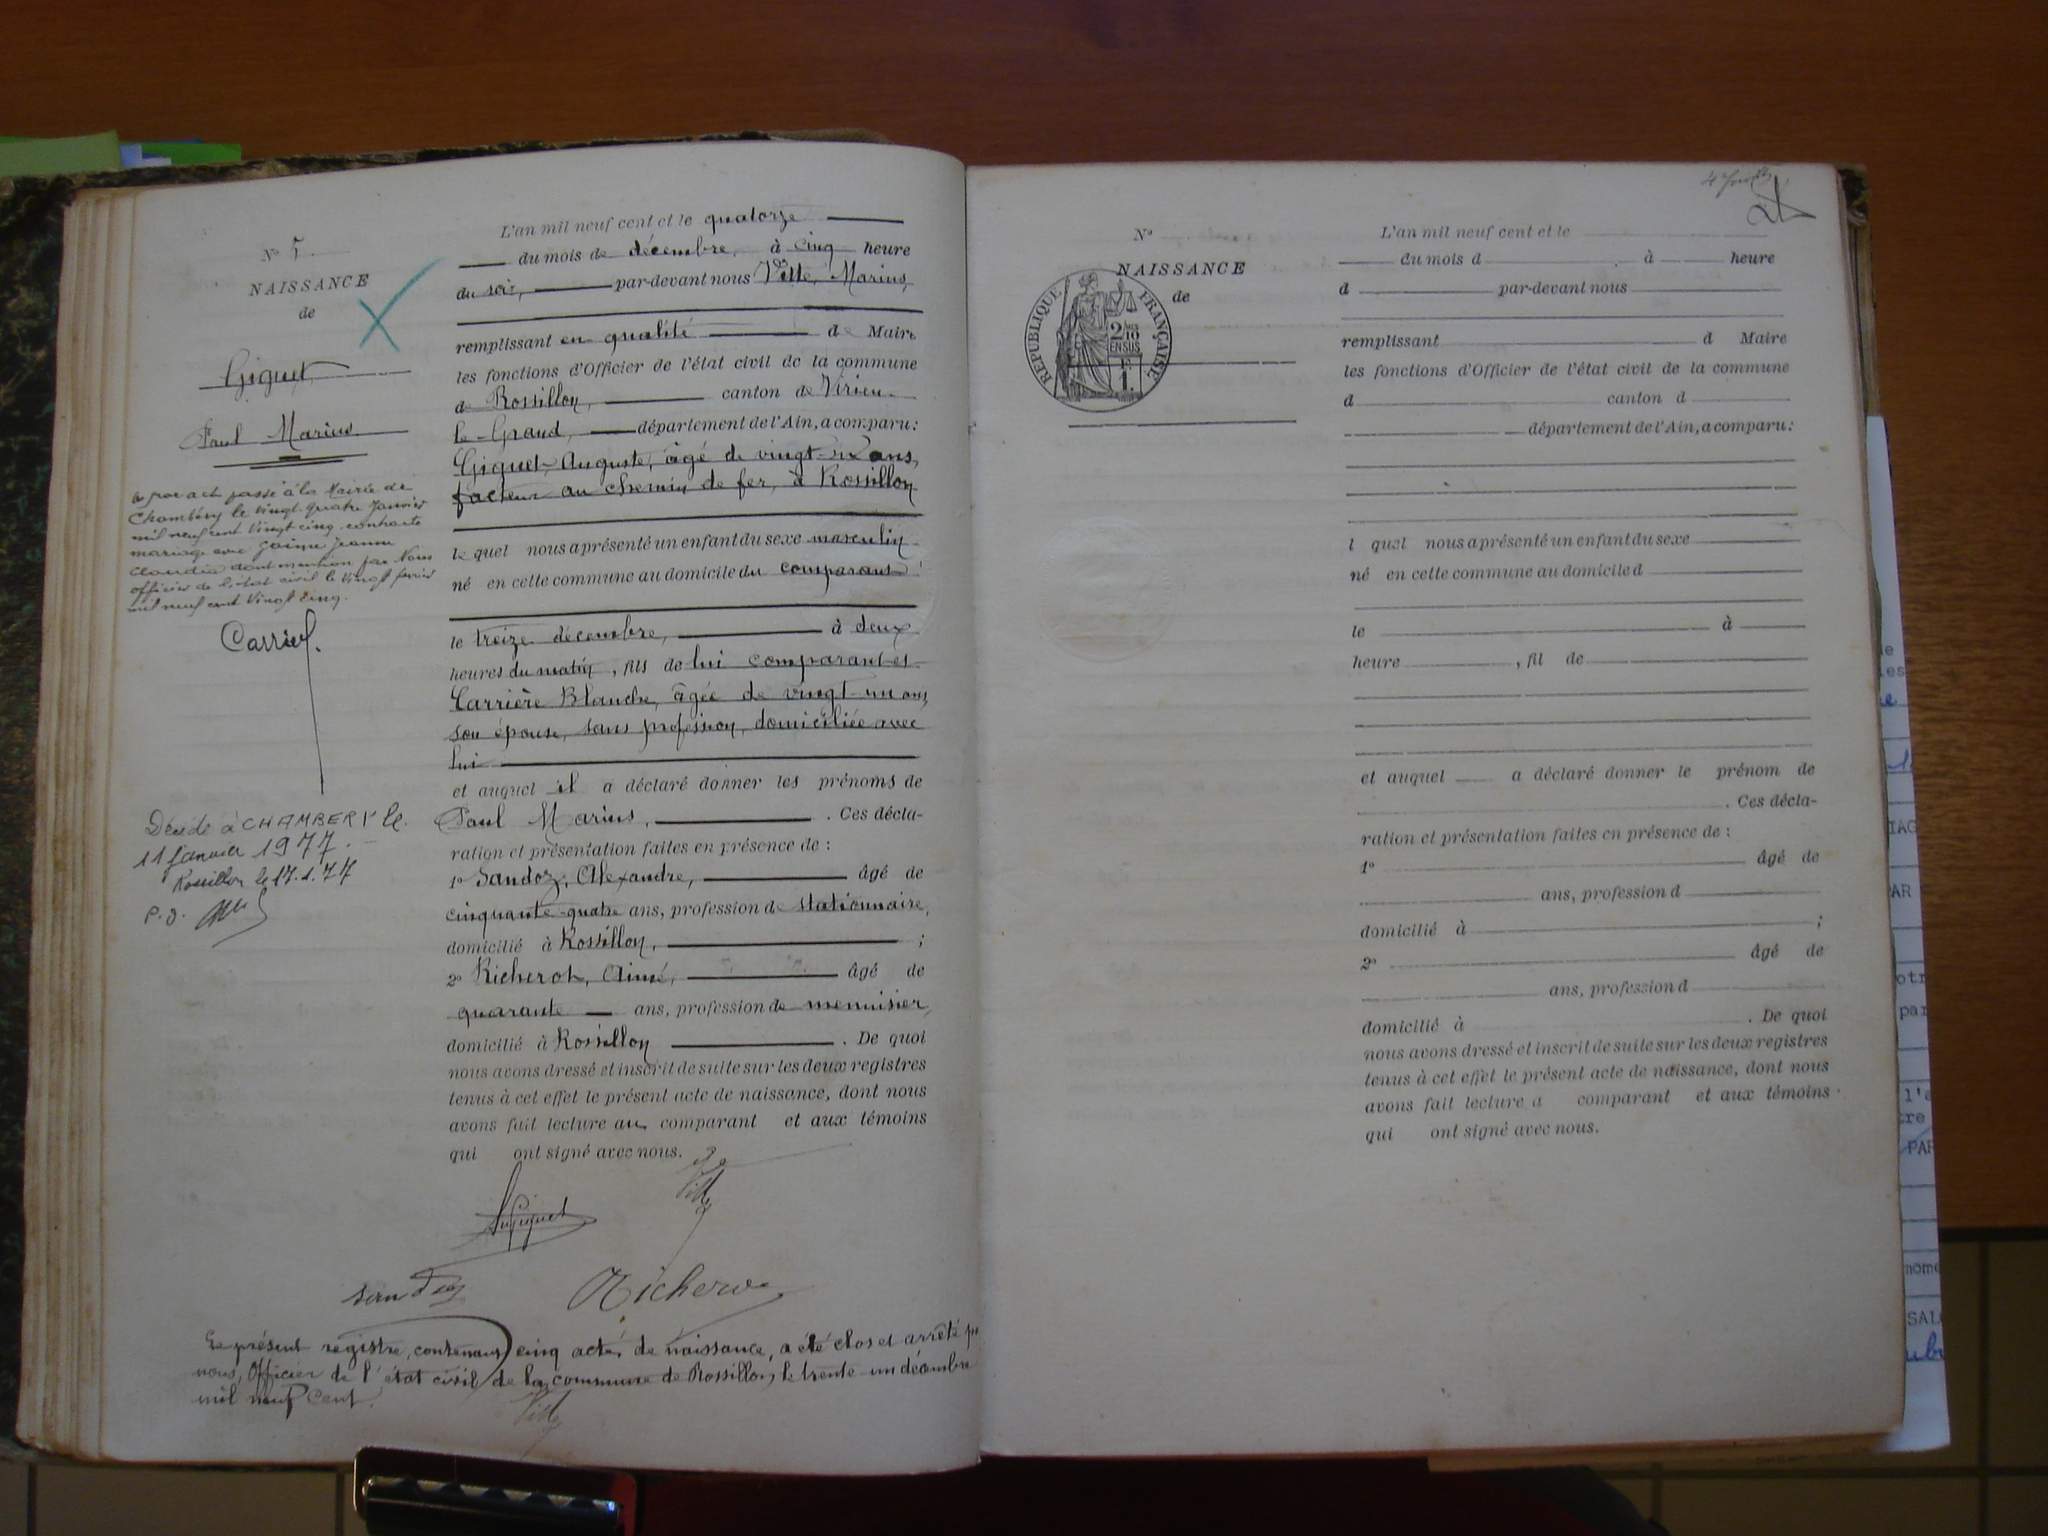 N° 5
NAISSANCE
de
Giguet
Paul Marius
par acte passé à la Mairie de
Chambéry le vingt quatre Janvier
mil neuf cent vingt cinq contracte
mariage avec Jeanne
Claudia dont mention par Nous
officier de l'état civil le vingt
mil neuf cent vingt cinq.
Carrier.
Décédé à CHAMBERY le
11 janvier 1977.
Rossillon le 17.1.77
P.O.
L'an mil neuf cent et le quatorze
du mois de décembre, à cinq heure
du soir, par-devant nous Ville, Marius,
remplissant en qualité de Maire
les fonctions d'Officier de l'état civil de la commune
de Rossillon, canton de Virieu-
le-Grand, département de l'Ain, a comparu:
Giguet, Auguste, âgé de vingt-six ans,
facteur au chemin de fer, à Rossillon
le quel nous a présenté un enfant du sexe masculin
né en cette commune au domicile du comparant
le treize décembre, à deux
heures du matin, fils de lui comparant et
Carrière Blanche, âgée de vingt-un ans,
son épouse, sans profession, domiciliée avec
lui
et auquel il a déclaré donner les prénoms de
Paul Marius, . Ces décla-
ration et présentation faites en présence de :
1° Sandoz, Alexandre, âgé de
cinquante-quatre ans, profession de stationnaire,
domicilié à Rossillon, ;
2° Richerot, Aimé, âgé de
quarante ans, profession de menuisier,
domicilié à Rossillon . De quoi
nous avons dressé et inscrit de suite sur les deux registres
tenus à cet effet le présent acte de naissance, dont nous
avons fait lecture au comparant et aux témoins
qui ont signé avec nous.
Giguet
Ville
Sandoz
Richerot
Le présent registre, contenant cinq actes de naissance, a été clos et arrêté par
nous, Officier de l'état civil de la commune de Rossillon, le trente-un décembre
mil neuf cent.
Ville
N°
NAISSANCE
de
RÉPUBLIQUE FRANÇAISE
2/10
EN SUS
1.
L'an mil neuf cent et le
du mois d à heure
d par-devant nous
remplissant d Maire
les fonctions d'Officier de l'état civil de la commune
d canton d
département de l'Ain, a comparu:
l quel nous a présenté un enfant du sexe
né en cette commune au domicile d
le à
heure , fil de
et auquel a déclaré donner le prénom de
. Ces décla-
ration et présentation faites en présence de :
1° âgé de
ans, profession d
domicilié à ;
2° âgé de
ans, profession d
domicilié à . De quoi
nous avons dressé et inscrit de suite sur les deux registres
tenus à cet effet le présent acte de naissance, dont nous
avons fait lecture a comparant et aux témoins
qui ont signé avec nous.